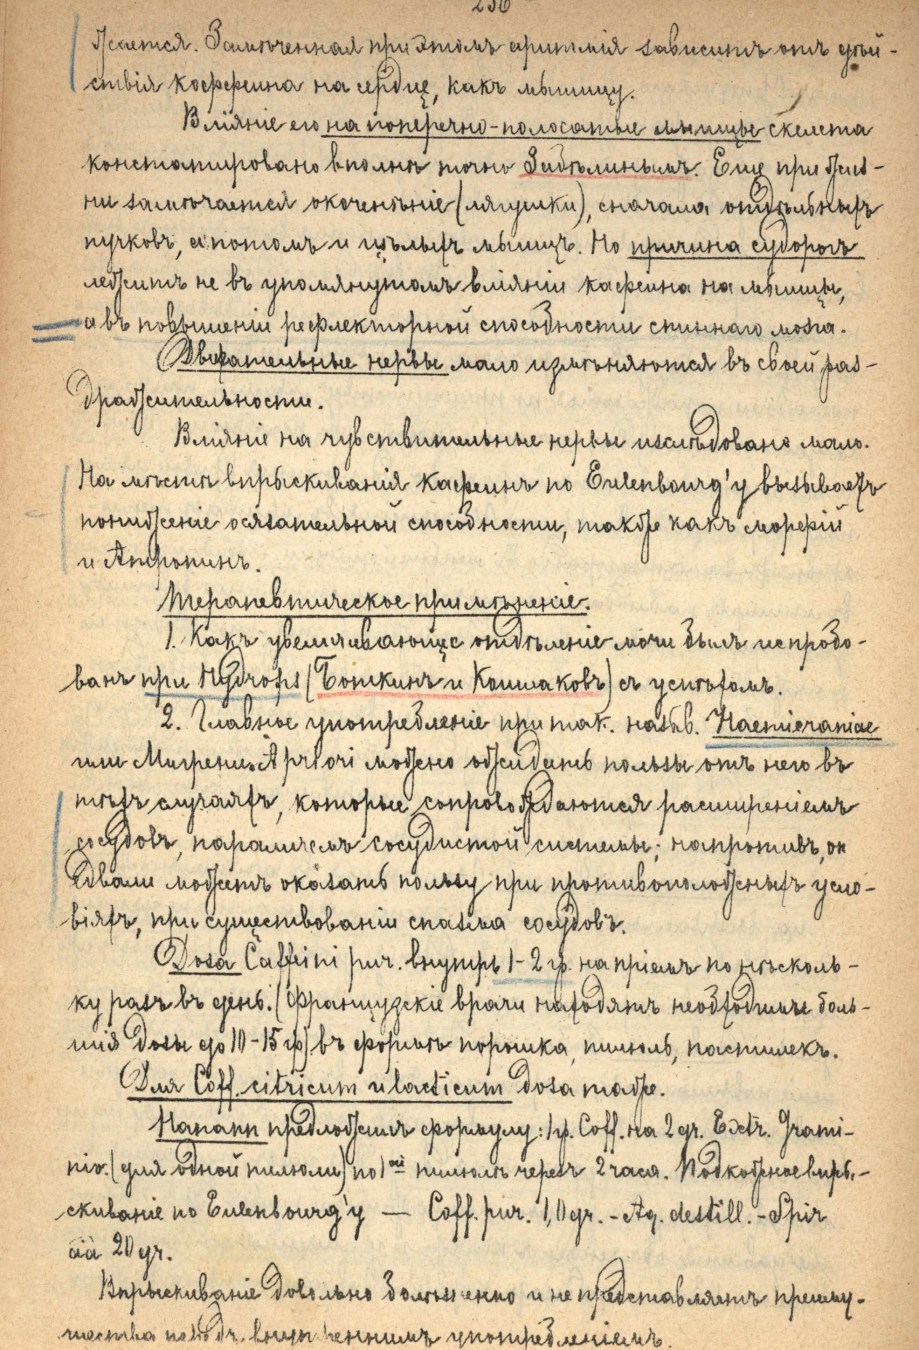 236
жается. Замѣченная при этомъ аритмія зависитъ отъ дѣй-
ствія коффеина на сердце, какъ мышицу.
Вліяніе его на поперечно-полосатые мышцы скелета
констатировано вполнѣ точно Забѣлинымъ. Еще при жиз-
ни замѣчается окоченѣніе (лягушки), сначала отдѣльныхъ
пучковъ, а потомъ и цѣлыхъ мышцъ. Но причина судорогъ
лежитъ не въ упомянутомъ вліяніи кафеина на мышцы,
а въ повышеніи рефлекторной способности спиннаго мозга.
Двигательные нервы мало измѣняются въ своей раз-
дражительности.
Вліяніе на чувствительные нервы изслѣдовано мало.
На мѣстѣ впрыскиванія кафеинъ по Eulenbourg'у вызываетъ
пониженіе осязательной способности, также какъ морфій
и Атропинъ.
Терапевтическое примѣненіе.
1. Какъ увеличивающее отдѣленіе мочи былъ испробо-
ванъ при Hydrops (Боткинъ и Кошлаковъ) съ успѣхомъ.
2. Главное употребленіе при так. назыв. Haemicraniae
или Мигрени. A priori можно ожидать пользы отъ него въ
тѣхъ случаяхъ, которые сопровождаются расширеніемъ
сосудовъ, параличемъ сосудистой системы; напротивъ, он
едвали можетъ оказать пользу при противоположныхъ усло-
віяхъ, при существованіи спазма сосудовъ.
Doza Caffeini pur. внутрь 1-2 гр. на пріемъ по нѣсколь-
ку разъ въ день. (Французскіе врачи находятъ необходимые боль-
шія дозы до 10-15 гр) въ формѣ порошка, пилюль, пастилекъ.
Для Coff. citricum и lacticum doza таже.
Hanann предложилъ формулу: 1 гр. Coff. на 2 gr. Extr. Grami-
nis. (для одной пилюли) по 1ой пилюлѣ черезъ 2 часа. Подкожное впры-
скиваніе по Eulenbourg'у — Coff. pur. 1,0 gr. - Aq. destill. - Spir
aa 20 gr.
Впрыскиваніе довольно болѣзненно и не представляетъ преиму-
щества передъ внутреннимъ употребленіемъ.